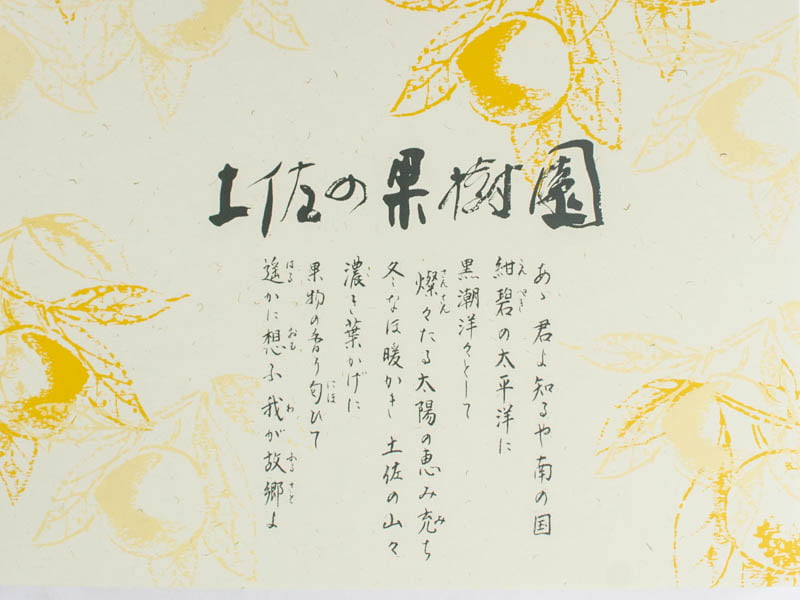 土佐の果樹園
あゝ君よ知るや南の国
紺碧の太平洋に
黒潮洋々として
燦々たる太陽の恵み充ち
冬なほ暖かき土佐の山々
濃き葉かげに
果物の香り匂ひて
遙かに想ふ我が故郷よ